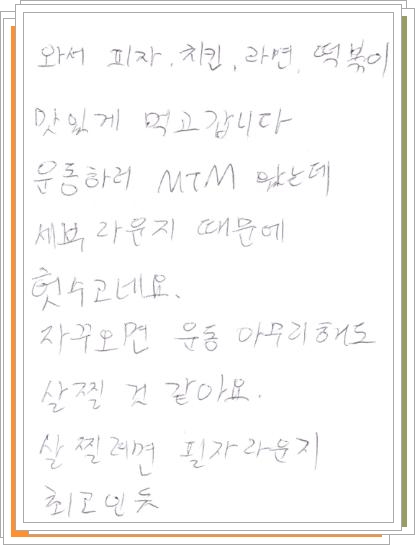 와서 피자, 치킨, 라면, 떡볶이
맛있게 먹고갑니다
운동하러 MTM 왔는데
세부 라운지 때문에
헛수고네요.
자꾸오면 운동 아무리해도
살찔 것 같아요.
살찔려면 필자라운지
최고인듯